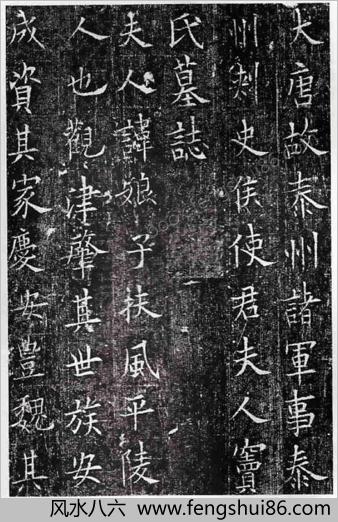 大唐故泰州諸軍事泰
州刺史侯使君夫人竇
氏墓誌
夫人諱娘子扶風平陵
人也觀津肇其世族安
成資其家慶安豊魏其
风水八六 www.fengshui86.com